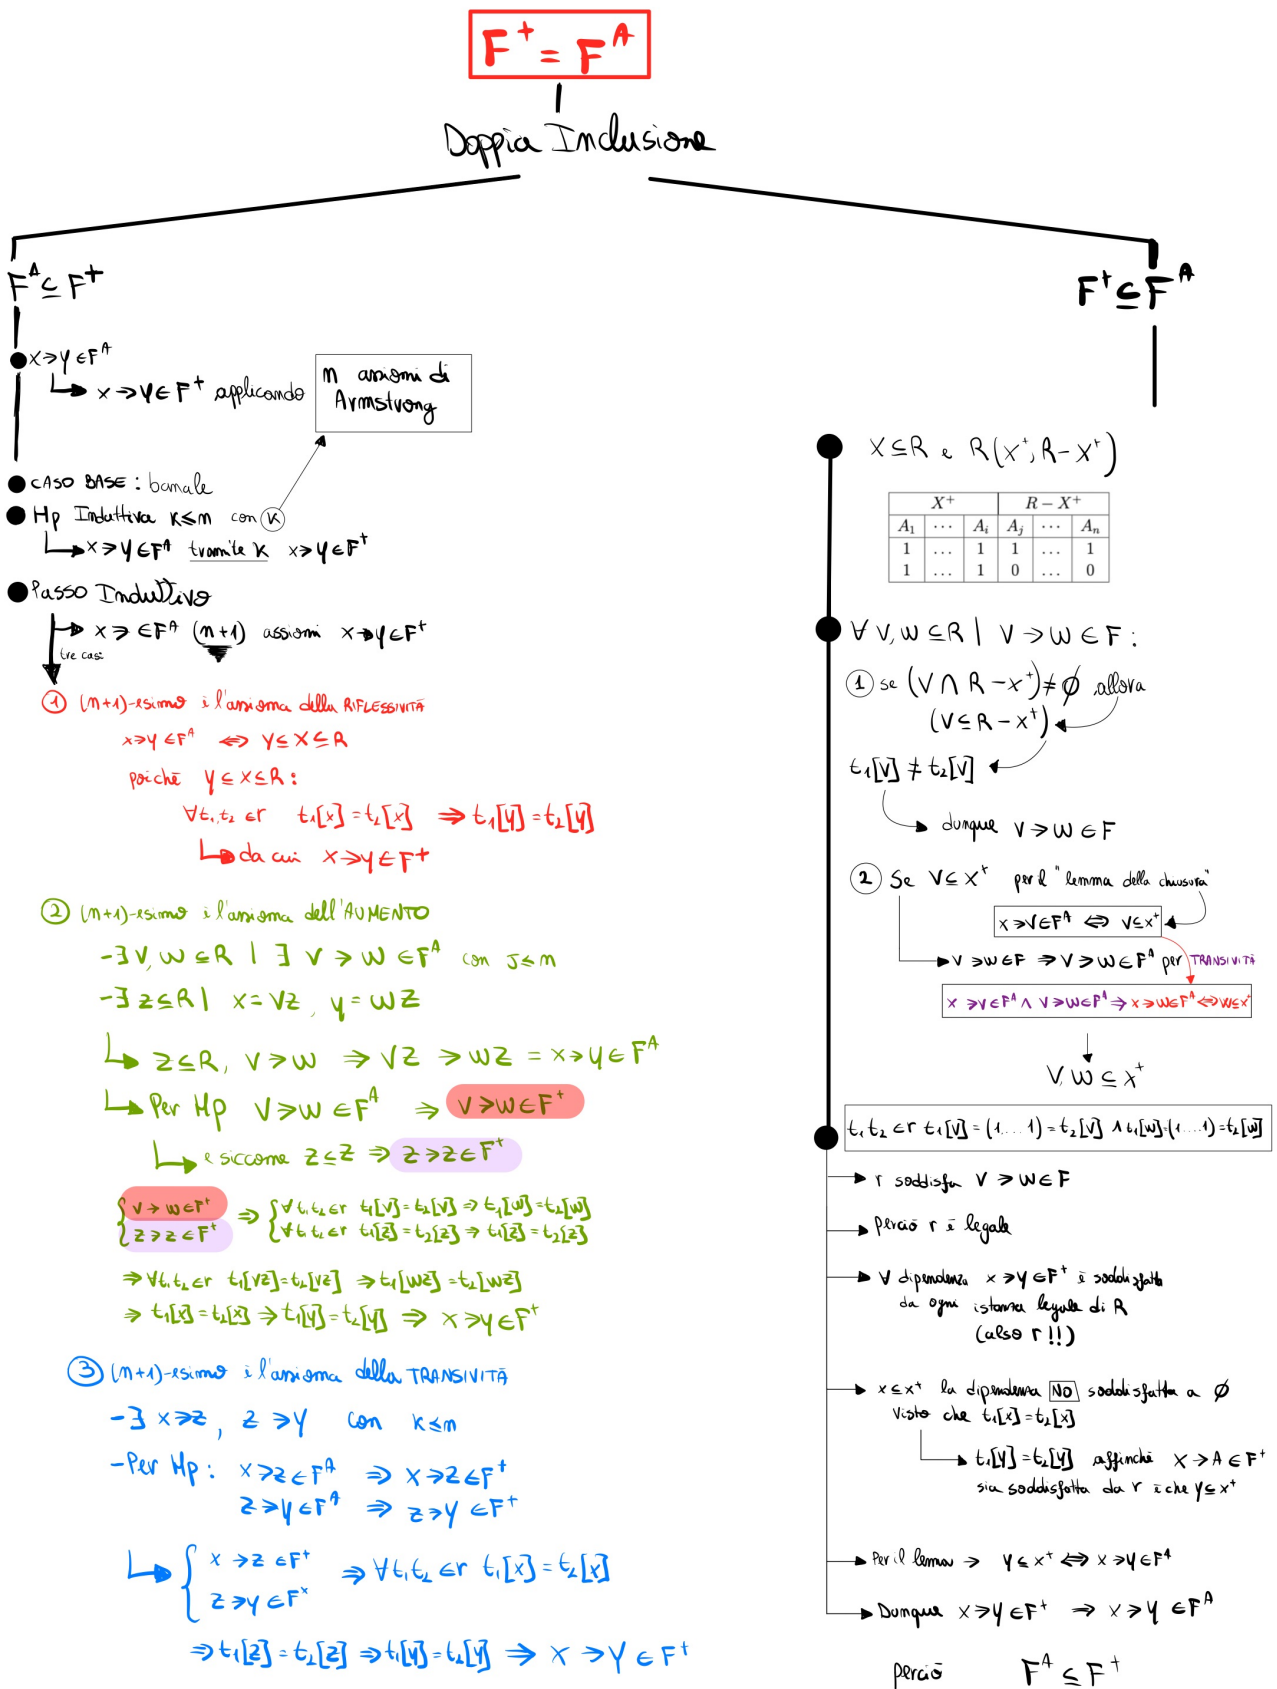 F⁺ = Fᴬ
Doppia Inclusione
Fᴬ ⊆ F⁺
X→Y ∈ Fᴬ
X→Y ∈ F⁺ applicando
n assiomi di
Armstrong
CASO BASE : banale
Hp Induttiva K≤n con K
X→Y ∈ Fᴬ tramite K X→Y ∈ F⁺
Passo Induttivo
X→ ∈ Fᴬ (n+1) assiomi X→Y ∈ F⁺
tre casi
① (n+1)-esimo è l'assioma della RIFLESSIVITÀ
X→Y ∈ Fᴬ ⇔ Y ⊆ X ⊆ R
poiché Y ⊆ X ⊆ R :
∀t₁,t₂ ∈ r t₁[X] = t₂[X] ⇒ t₁[Y] = t₂[Y]
da cui X→Y ∈ F⁺
② (n+1)-esimo è l'assioma dell'AUMENTO
-∃ V, W ⊆ R | ∃ V → W ∈ Fᴬ con J≤n
-∃ Z ⊆ R | X = VZ, Y = WZ
Z ⊆ R, V → W ⇒ VZ → WZ = X→Y ∈ Fᴬ
Per Hp V→W ∈ Fᴬ ⇒ V→W ∈ F⁺
e siccome Z ⊆ Z ⇒ Z→Z ∈ F⁺
V → W ∈ F⁺ ⇒ ∀t₁t₂ ∈ r t₁[V] = t₂[V] ⇒ t₁[W] = t₂[W]
Z → Z ∈ F⁺ ∀t₁t₂ ∈ r t₁[Z] = t₂[Z] ⇒ t₁[Z] = t₂[Z]
⇒ ∀t₁t₂ ∈ r t₁[VZ] = t₂[VZ] ⇒ t₁[WZ] = t₂[WZ]
⇒ t₁[X] = t₂[X] ⇒ t₁[Y] = t₂[Y] ⇒ X→Y ∈ F⁺
③ (n+1)-esimo è l'assioma della TRANSIVITÀ
-∃ X→Z, Z→Y con K≤n
-Per Hp : X→Z ∈ Fᴬ ⇒ X→Z ∈ F⁺
Z→Y ∈ Fᴬ ⇒ Z→Y ∈ F⁺
X → Z ∈ F⁺ ⇒ ∀t₁t₂ ∈ r t₁[X] = t₂[X]
Z→Y ∈ F⁺
⇒ t₁[Z] = t₂[Z] ⇒ t₁[Y] = t₂[Y] ⇒ X → Y ∈ F⁺
F⁺ ⊆ Fᴬ
X ⊆ R e R(X⁺, R-X⁺)
X⁺ R − X⁺
A₁ ⋯ Aᵢ Aⱼ ⋯ Aₙ
1 … 1 1 … 1
1 … 1 0 … 0
∀ V, W ⊆ R | V → W ∈ F :
① se (V ∩ R - X⁺) ≠ ∅ allora
(V ⊆ R - X⁺)
t₁[V] ≠ t₂[V]
dunque V → W ∈ F
② Se V ⊆ X⁺ per il "lemma della chiusura"
X→V ∈ Fᴬ ⇔ V ⊆ X⁺
V→W ∈ F ⇒ V→W ∈ Fᴬ per TRANSIVITÀ
X → V ∈ Fᴬ ∧ V→W ∈ Fᴬ ⇒ X→W ∈ Fᴬ ⇔ W ⊆ X⁺
V, W ⊆ X⁺
t₁ t₂ ∈ r t₁[V] = (1....1) = t₂[V] ∧ t₁[W] = (1....1) = t₂[W]
r soddisfa V → W ∈ F
Perciò r è legale
∀ dipendenza X→Y ∈ F⁺ è soddisfatta
da ogni istanza legale di R
(also r !!)
X ⊆ X⁺ la dipendenza NO soddisfatta a ∅
Visto che t₁[X] = t₂[X]
t₁[Y] = t₂[Y] affinché X → A ∈ F⁺
sia soddisfatta da r è che Y ⊆ X⁺
Per il lemma → Y ⊆ X⁺ ⇔ X→Y ∈ Fᴬ
Dunque X→Y ∈ F⁺ ⇒ X → Y ∈ Fᴬ
perciò Fᴬ ⊆ F⁺